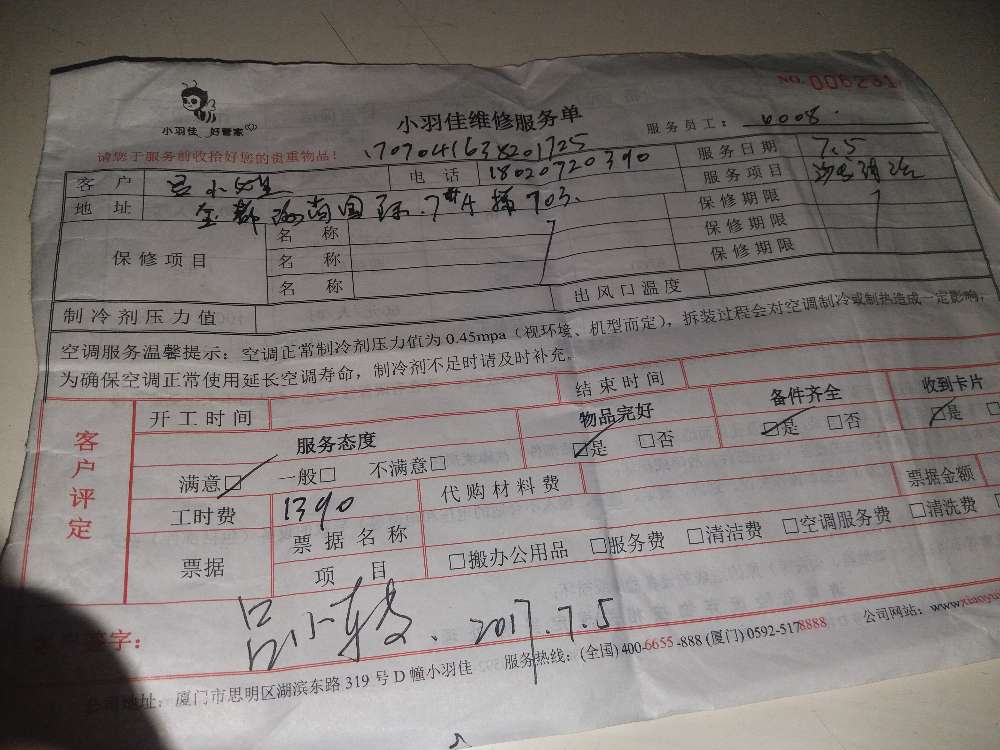 NO. 006231
小羽佳 好管家
小羽佳维修服务单
服务员工: 6008
请您于服务前收拾好您的贵重物品! 170704163820 1725
客户 吕小 电话 18020720390 服务日期 7.5
地址 金都海尚国际.7#A梯703. 服务项目 沙发清洗
保修项目 名称 保修期限
名称 保修期限
名称 保修期限
制冷剂压力值 出风口温度
空调服务温馨提示: 空调正常制冷剂压力值为0.45mpa (视环境、机型而定), 拆装过程会对空调制冷或制热造成一定影响,
为确保空调正常使用延长空调寿命, 制冷剂不足时请及时补充。
客户评定 开工时间 结束时间
服务态度 物品完好 备件齐全 收到卡片
满意□ 一般□ 不满意□ □是 □否 □是 □否 □是
工时费 1390 代购材料费 票据金额
票据 票据名称
项目 □搬办公用品 □服务费 □清洁费 □空调服务费 □清洗费
字: 吕小 2017.7.5
公司地址: 厦门市思明区湖滨东路319号D幢小羽佳 服务热线: (全国) 400-6655-888 (厦门) 0592-5178888 公司网站: www.xiaoyu